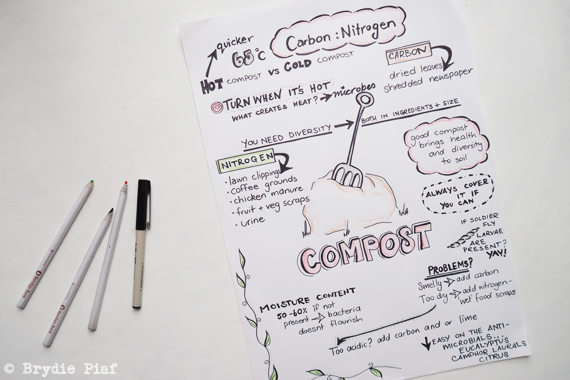 quicker
65°C
Carbon : Nitrogen
HOT COMPOST VS COLD COMPOST
CARBON
dried leaves
shredded newspaper
TURN WHEN IT'S HOT
WHAT CREATES HEAT? → microbes
YOU NEED DIVERSITY → BOTH IN INGREDIENTS + SIZE
good compost
brings health
and diversity
to soil
NITROGEN
• lawn clippings
• coffee grounds
• chicken manure
• fruit + veg scraps
• urine
ALWAYS COVER
IT IF
YOU CAN
IF SOLDIER
FLY
LARVAE
ARE
PRESENT?
YAY!
COMPOST
PROBLEMS?
Smelly → add carbon
Too dry → add nitrogen-
wet food scraps
MOISTURE CONTENT
50-60% if not
present → bacteria
doesnt flourish
Too acidic? add carbon and or lime
EASY ON THE ANTI-
MICROBIALS...
EUCALYPTUS
CAMPHOR LAURALS
CITRUS
© Brydie Piaf